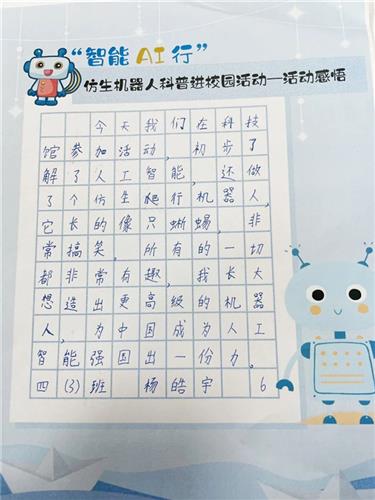 “智能AI行”
仿生机器人科普进校园活动—活动感悟
今天我们在科技
馆参加活动，初步了
解了人工智能，还做
了个仿生爬行机器人，
它长的像只蜥蜴，非
常搞笑。所有的一切
都非常有趣，我长大
想造出更高级的机器
人，为中国成为人工
智能强国出一份力。
四(3)班 杨皓宇 6